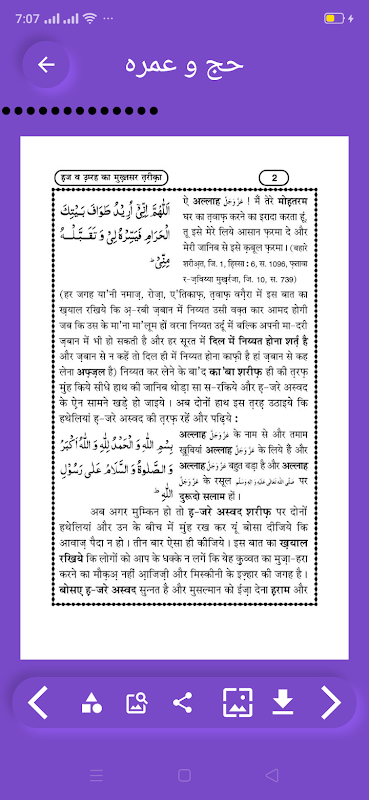 7:07
حج و عمره
हज व उ़म्रह का मुख़्तसर त़रीक़ा
2
اَللّٰهُمَّ اِنِّیْۤ اُرِیْدُ طَوَافَ بَیْتِكَ
الْحَرَامِ فَیَسِّرْهُ لِیْ وَ تَقَبَّلْهُ
مِنِّیْ ؕ
ऐ अल्लाह عَزَّوَجَلَّ ! मैं तेरे मोह़तरम
घर का त़वाफ़ करने का इरादा करता हूं,
तू इसे मेरे लिये आसान फ़रमा दे और
मेरी जानिब से इसे क़बूल फ़रमा । (बहारे
शरीअ़त, जि. 1, हि़स्सा : 6, स. 1096, फ़तावा
र-ज़विय्या मुख़र्रजा, जि. 10, स. 739)
(हर जगह या'नी नमाज़, रोज़ा, ए'तिकाफ़, त़वाफ़ वग़ैरा में इस बात का
ख़याल रखिये कि अ़-रबी ज़बान में निय्यत उसी वक़्त कार आमद होगी
जब कि उस के मा'ना मा'लूम हों वरना निय्यत उर्दू में बल्कि अपनी मा-दरी
ज़बान में भी हो सकती है और हर सूरत में दिल में निय्यत होना शर्त़ है
और ज़बान से न कहें तो दिल ही में निय्यत होना काफ़ी है हां ज़बान से कह
लेना अफ़्ज़ल है) निय्यत कर लेने के बा'द का'बा शरीफ़ ही की त़रफ़
मुंह किये सीधे हाथ की जानिब थोड़ा सा स-रकिये और ह़-जरे अस्वद
के ऐन सामने खड़े हो जाइये । अब दोनों हाथ इस त़रह़ उठाइये कि
हथेलियां ह़-जरे अस्वद की त़रफ़ रहें और पढ़िये :
بِسْمِ اللّٰهِ وَ الْحَمْدُ لِلّٰهِ وَ اللّٰهُ اَكْبَرُ
وَ الصَّلٰوةُ وَ السَّلَامُ عَلٰی رَسُوْلِ
اللّٰهِ ؕ
अल्लाह عَزَّوَجَلَّ के नाम से और तमाम
ख़ूबियां अल्लाह عَزَّوَجَلَّ के लिये हैं और
अल्लाह عَزَّوَجَلَّ बहुत बड़ा है और अल्लाह
عَزَّوَجَلَّ के रसूल صَلَّی اللّٰهُ تَعَالٰی عَلَیْهِ وَاٰلِهٖ وَسَلَّم पर
दुरूदो सलाम हों ।
अब अगर मुम्किन हो तो ह़-जरे अस्वद शरीफ़ पर दोनों
हथेलियां और उन के बीच में मुंह रख कर यूं बोसा दीजिये कि
आवाज़ पैदा न हो । तीन बार ऐसा ही कीजिये । इस बात का ख़याल
रखिये कि लोगों को आप के धक्के न लगें कि येह क़ुव्वत का मुज़ा-हरा
करने का मौक़अ़ नहीं आ़जिज़ी और मिस्कीनी के इज़्हार की जगह है ।
बोसए ह़-जरे अस्वद सुन्नत है और मुसल्मान को ईज़ा देना ह़राम और